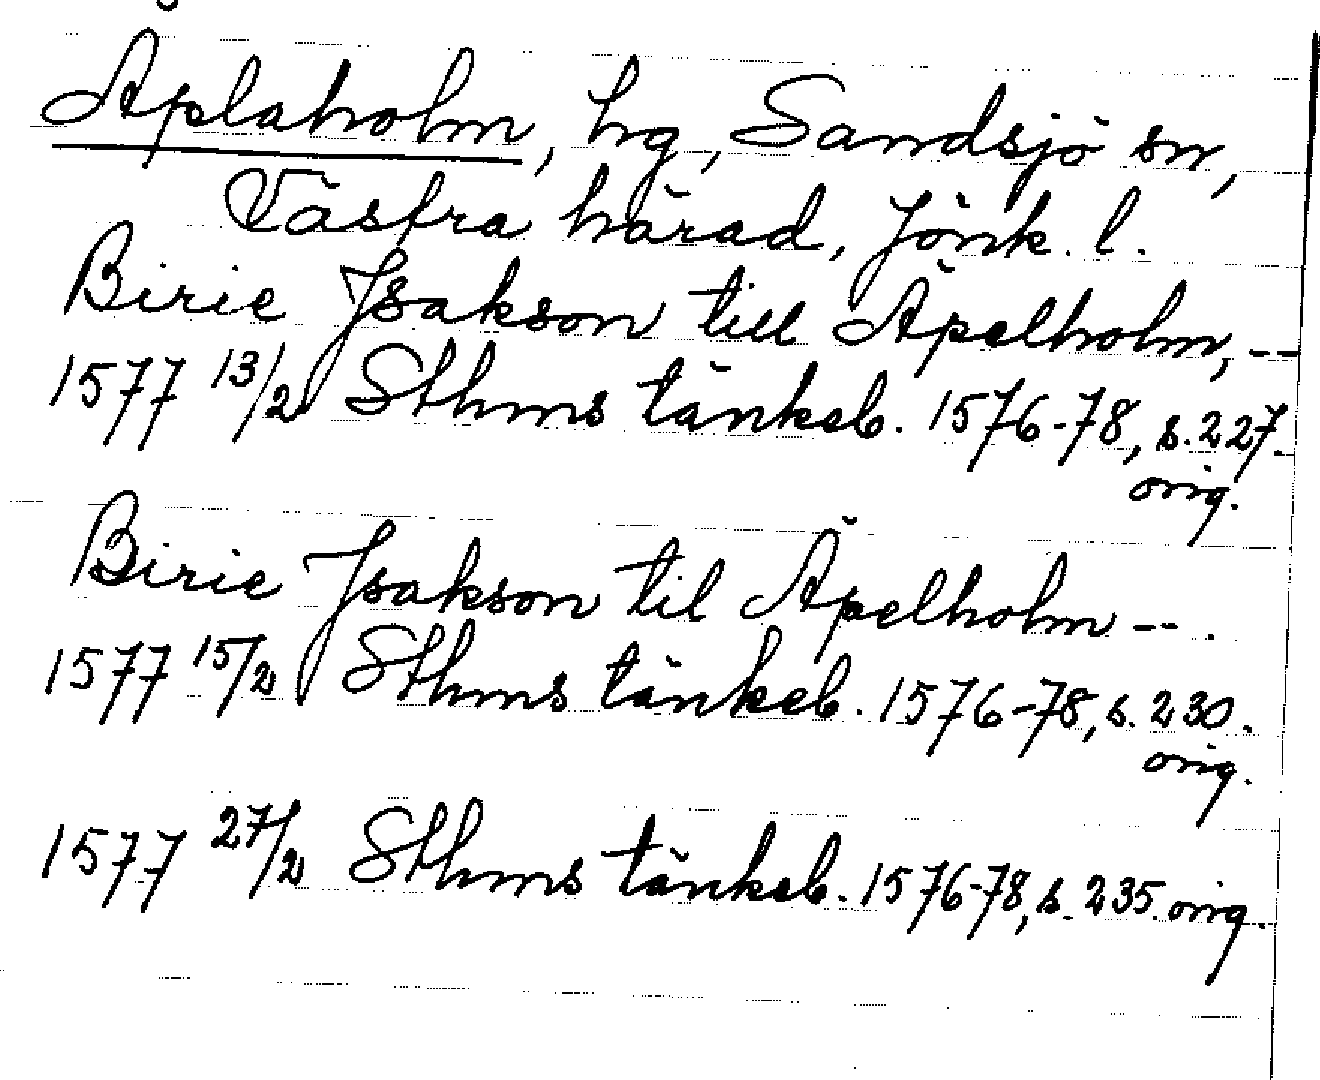 Äplaholm, hg, Sandsjö sn,
Västra härad, Jönk. l.
Birie Jsakson till Äpelholm, --
1577 13/2 Sthms tänkeb. 1576-78, s. 227.
orig.
Birie Jsakson til Äpelholm -- .
1577 15/2 Sthms tänkeb. 1576-78, s. 230.
orig.
1577 27/2 Sthms tänkeb. 1576-78, s. 235. orig.